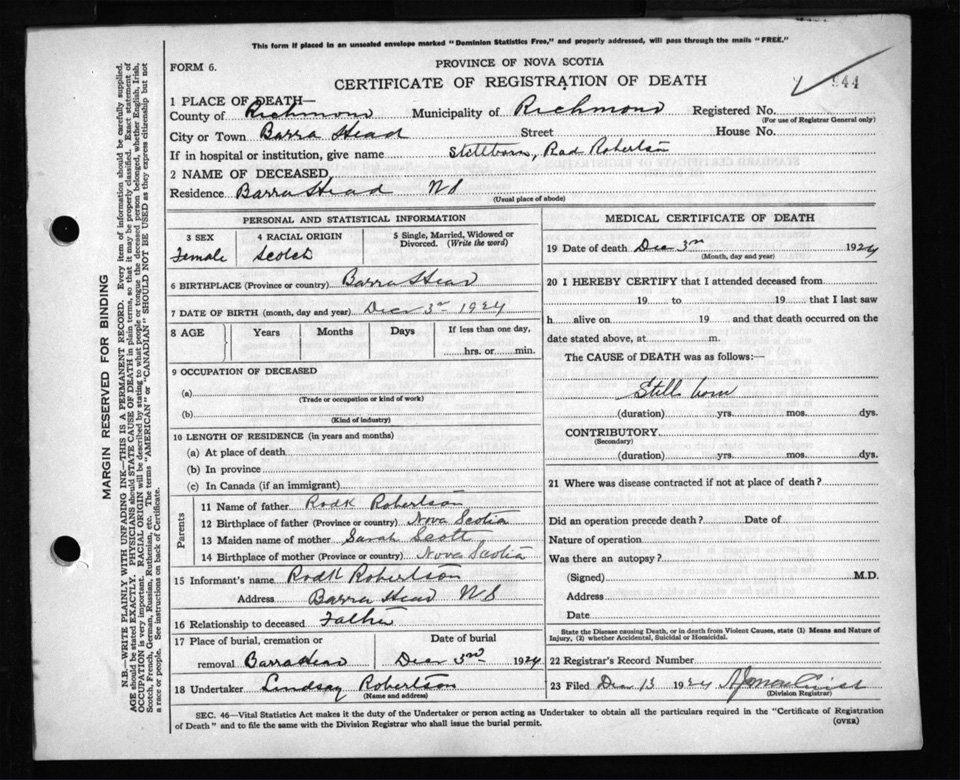 This form if placed in an unsealed envelope marked "Dominion Statistics Free," and properly addressed, will pass through the mails "FREE."
FORM 6.
PROVINCE OF NOVA SCOTIA
CERTIFICATE OF REGISTRATION OF DEATH
944
1 PLACE OF DEATH—
County of Richmond Municipality of Richmond Registered No.
(For use of Registrar General only)
City or Town Barra Head Street House No.
If in hospital or institution, give name Stillborn, Rod Robertson
2 NAME OF DECEASED
Residence Barra Head NS
(Usual place of abode)
PERSONAL AND STATISTICAL INFORMATION
3 SEX 4 RACIAL ORIGIN 5 Single, Married, Widowed or Divorced. (Write the word)
Female Scotch
6 BIRTHPLACE (Province or country) Barra Head
7 DATE OF BIRTH (month, day and year) Dec 3rd 1924
8 AGE Years Months Days If less than one day,
hrs. or min.
9 OCCUPATION OF DECEASED
(a)
(Trade or occupation or kind of work)
(b)
(Kind of industry)
10 LENGTH OF RESIDENCE (in years and months)
(a) At place of death
(b) In province
(c) In Canada (if an immigrant)
Parents
11 Name of father Rodk Robertson
12 Birthplace of father (Province or country) Nova Scotia
13 Maiden name of mother Sarah Scott
14 Birthplace of mother (Province or country) Nova Scotia
15 Informant's name Rodk Robertson
Address Barra Head NS
16 Relationship to deceased Father
17 Place of burial, cremation or Date of burial
removal Barra Head Dec 3rd 1924
18 Undertaker Lindsay Robertson
(Name and address)
MEDICAL CERTIFICATE OF DEATH
19 Date of death Dec 3rd 1924
(Month, day and year)
20 I HEREBY CERTIFY that I attended deceased from
19 to 19 that I last saw
h alive on 19 and that death occurred on the
date stated above, at m.
The CAUSE of DEATH was as follows:—
Still born
(duration) yrs. mos. dys.
CONTRIBUTORY
(Secondary)
(duration) yrs. mos. dys.
21 Where was disease contracted if not at place of death?
Did an operation precede death? Date of
Nature of operation
Was there an autopsy?
(Signed) M.D.
Address
Date
State the Disease causing Death, or in death from Violent Causes, state (1) Means and Nature of
Injury, (2) whether Accidental, Suicidal or Homicidal.
22 Registrar's Record Number
23 Filed Dec 13 1924
(Division Registrar)
SEC. 46—Vital Statistics Act makes it the duty of the Undertaker or person acting as Undertaker to obtain all the particulars required in the "Certificate of Registration
of Death" and to file the same with the Division Registrar who shall issue the burial permit.
(OVER)
MARGIN RESERVED FOR BINDING
N.B.—WRITE PLAINLY WITH UNFADING INK—THIS IS A PERMANENT RECORD. Every item of information should be carefully supplied.
AGE should be stated EXACTLY. PHYSICIANS should STATE CAUSE OF DEATH in plain terms, so that it may be properly classified. Exact statement of
OCCUPATION is very important. RACIAL ORIGIN will be described by stating to what people or tongue the deceased person belonged, whether English, Irish,
Scotch, French, German, Russian, Ruthenian, etc. The terms "AMERICAN" or "CANADIAN" SHOULD NOT BE USED as they express citizenship but not
a race or people. See instructions on back of Certificate.